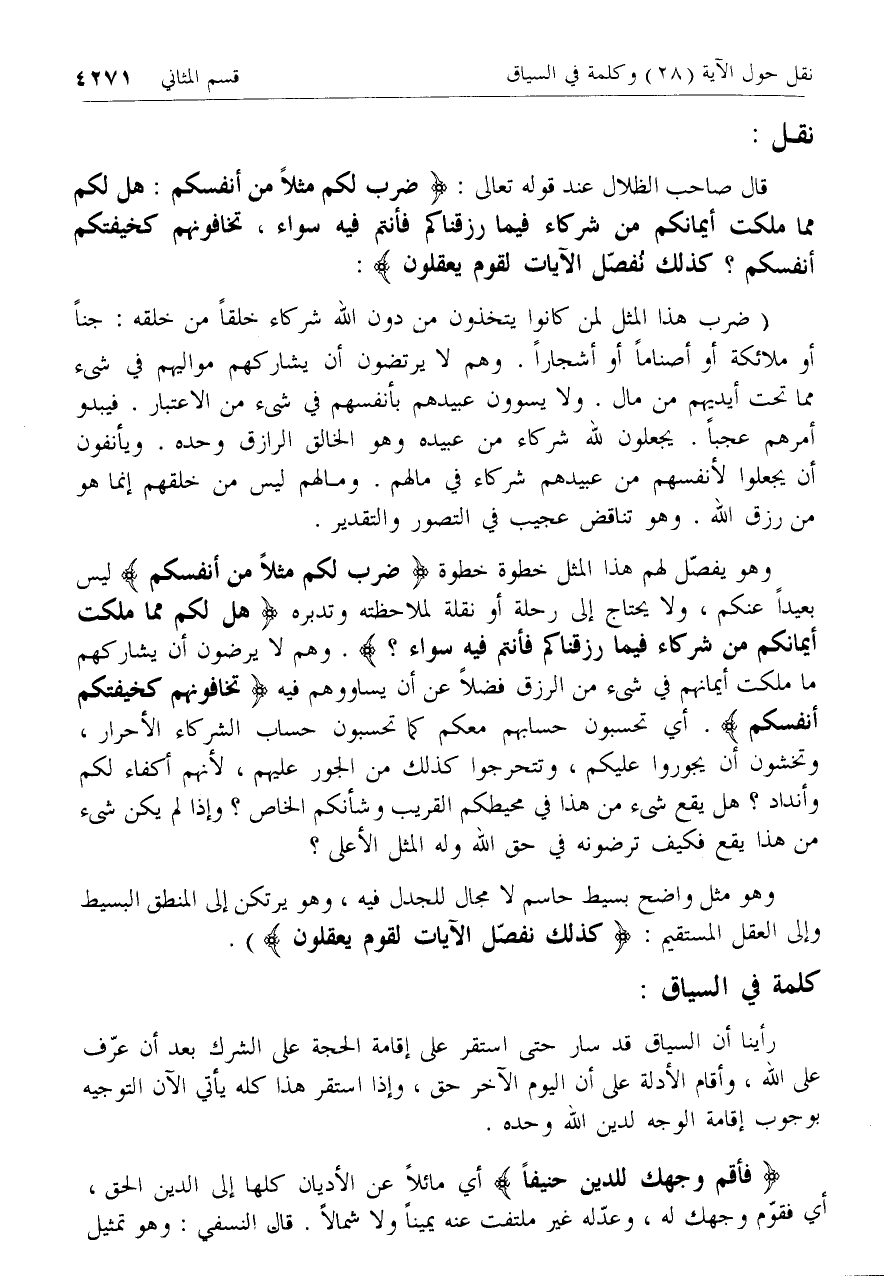 نقل حول الآية ( ٢٨ ) وكلمة في السياق قسم المثاني ٤٢٧١
نقـل :
قال صاحب الظلال عند قوله تعالى : ﴿ ضرب لكم مثلاً من أنفسكم : هل لكم
مما ملكت أيمانكم من شركاء فيما رزقناكم فأنتم فيه سواء ، تخافونهم كخيفتكم
أنفسكم ؟ كذلك نُفصّل الآيات لقوم يعقلون ﴾ :
( ضرب هذا المثل لمن كانوا يتخذون من دون الله شركاء خلقاً من خلقه : جناً
أو ملائكة أو أصناماً أو أشجاراً . وهم لا يرتضون أن يشاركهم مواليهم في شىء
مما تحت أيديهم من مال . ولا يسوون عبيدهم بأنفسهم في شىء من الاعتبار . فيبدو
أمرهم عجباً . يجعلون لله شركاء من عبيده وهو الخالق الرازق وحده . ويأنفون
أن يجعلوا لأنفسهم من عبيدهم شركاء في مالهم . ومـالهم ليس من خلقهم إنما هو
من رزق الله . وهو تناقض عجيب في التصور والتقدير .
وهو يفصّل لهم هذا المثل خطوة خطوة ﴿ ضرب لكم مثلاً من أنفسكم ﴾ ليس
بعيداً عنكم ، ولا يحتاج إلى رحلة أو نقلة لملاحظته وتدبره ﴿ هل لكم مما ملكت
أيمانكم من شركاء فيما رزقناكم فأنتم فيه سواء ؟ ﴾ . وهم لا يرضون أن يشاركهم
ما ملكت أيمانهم في شىء من الرزق فضلاً عن أن يساووهم فيه ﴿ تخافونهم كخيفتكم
أنفسكم ﴾ . أي تحسبون حسابهم معكم كما تحسبون حساب الشركاء الأحرار ،
وتخشون أن يجوروا عليكم ، وتتحرجوا كذلك من الجور عليهم ، لأنهم أكفاء لكم
وأنداد ؟ هل يقع شىء من هذا في محيطكم القريب وشأنكم الخاص ؟ وإذا لم يكن شىء
من هذا يقع فكيف ترضونه في حق الله وله المثل الأعلى ؟
وهو مثل واضح بسيط حاسم لا مجال للجدل فيه ، وهو يرتكن إلى المنطق البسيط
وإلى العقل المستقيم : ﴿ كذلك نفصّل الآيات لقوم يعقلون ﴾ ) .
كلمة في السياق :
رأينا أن السياق قد سار حتى استقر على إقامة الحجة على الشرك بعد أن عرّف
على الله ، وأقام الأدلة على أن اليوم الآخر حق ، وإذا استقر هذا كله يأتي الآن التوجيه
بوجوب إقامة الوجه لدين الله وحده .
﴿ فأقم وجهك للدين حنيفاً ﴾ أي مائلاً عن الأديان كلها إلى الدين الحق ،
أي فقوّم وجهك له ، وعدّله غير ملتفت عنه يميناً ولا شمالاً . قال النسفي : وهو تمثيل